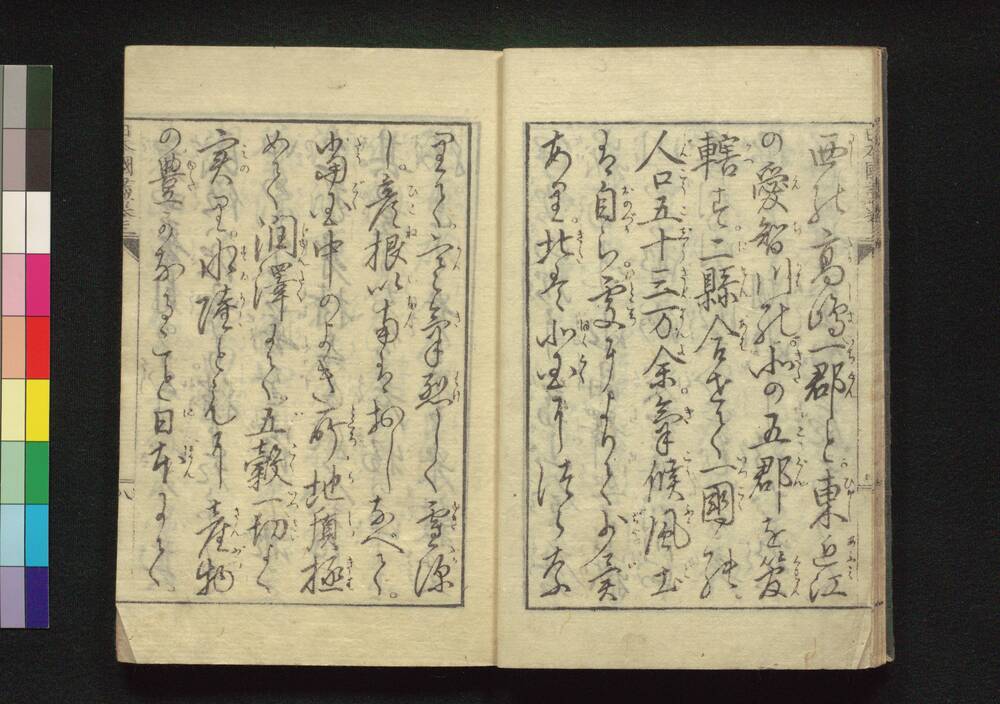 西の方高嶋一郡と東近江
の愛智川の北の五郡を管
轄す二縣合せて一國の
人口五十三万余氣候風土
は自ら處によりて少異
あり北は北国に
りて寒氣烈しく雪深
し彦根以南はおしなべて
当国中のよき所地質極
めて潤澤にて五穀一切よく
実り水陸ともに産物
の豊かなること日本にて
八